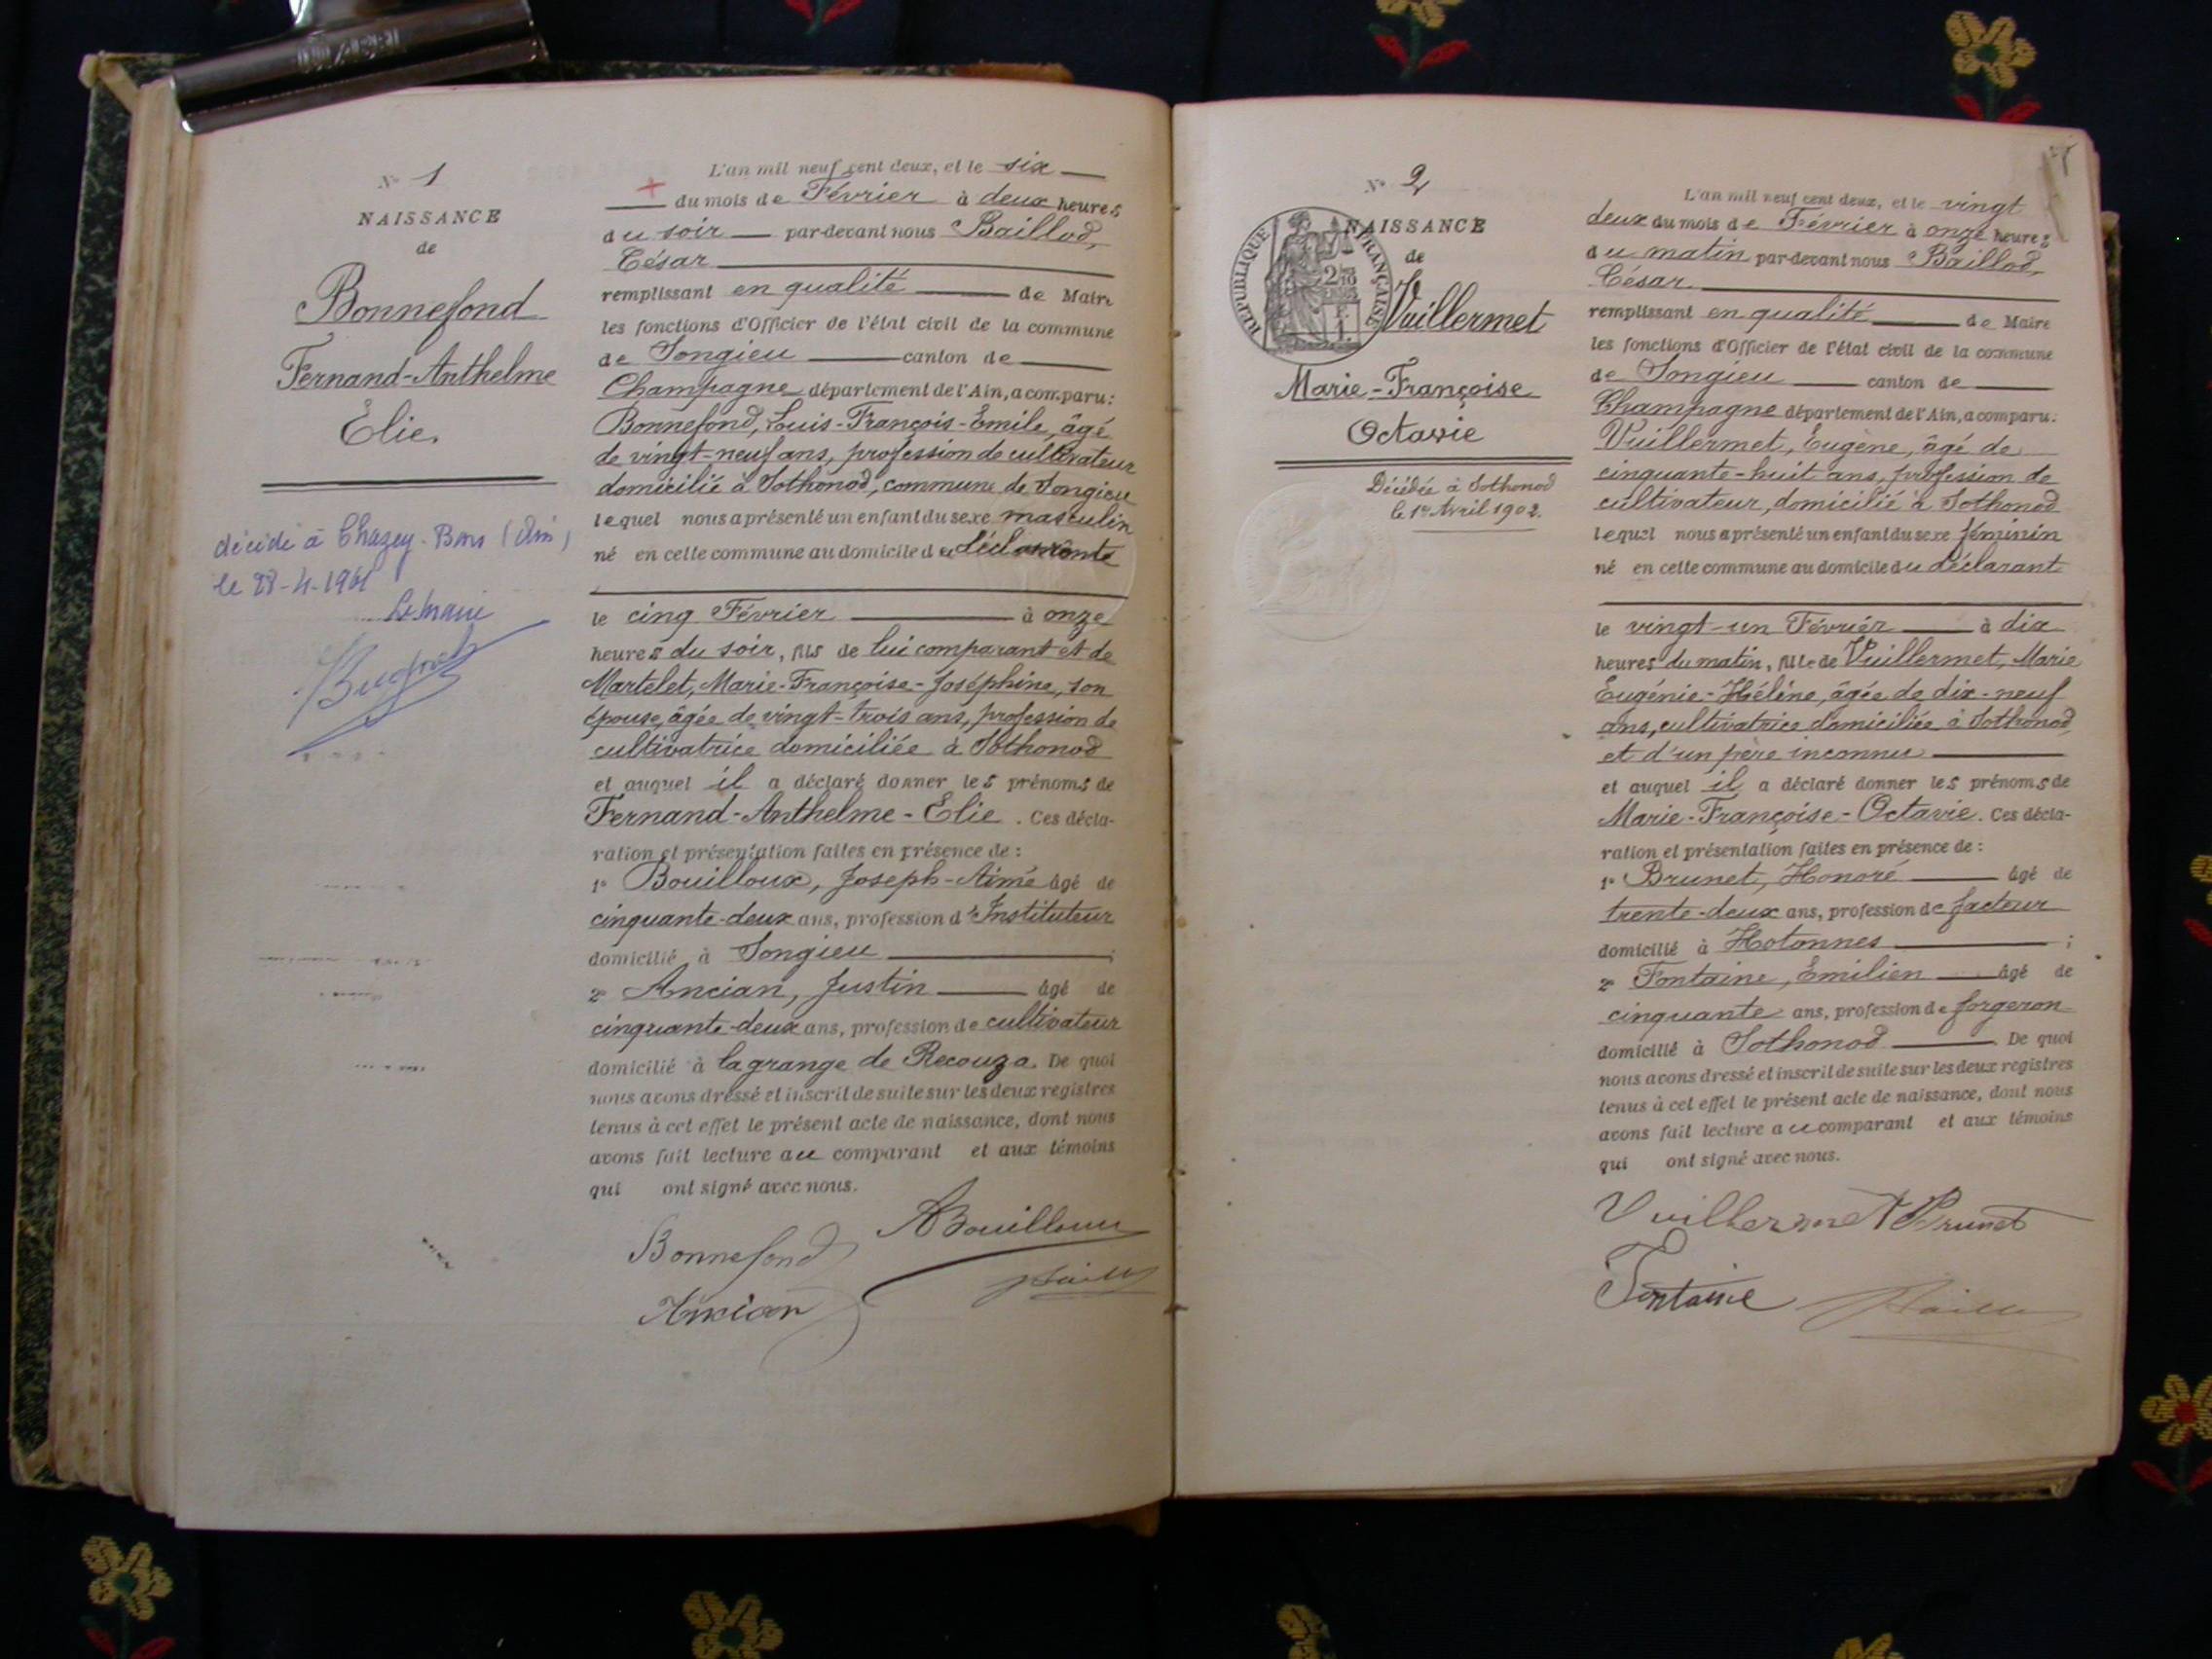 N° 1
NAISSANCE
de
Bonnefond
Fernand-Anthelme
Élie.
décédé à Chazey-Bons (Ain)
le 28-4-1961
Le maire
L'an mil neuf cent deux, et le six
du mois de Février à deux heures
du soir par-devant nous Baillod,
César
remplissant en qualité de Maire
les fonctions d'Officier de l'état civil de la commune
de Songieu canton de
Champagne département de l'Ain, a comparu:
Bonnefond, Louis-François-Émile, âgé
de vingt-neuf ans, profession de cultivateur
domicilié à Sothonod, commune de Songieu
lequel nous a présenté un enfant du sexe masculin
né en cette commune au domicile du
le cinq Février à onze
heures du soir, fils de lui comparant et de
Martelet, Marie-Françoise-Joséphine, son
épouse, âgée de vingt-trois ans, profession de
cultivatrice domiciliée à Sothonod
et auquel il a déclaré donner les prénoms de
Fernand-Anthelme-Elie. Ces décla-
ration et présentation faites en présence de :
1° Bouilloux, Joseph-Aimé âgé de
cinquante-deux ans, profession d'Instituteur
domicilié à Songieu ;
2° Ancian, Justin âgé de
cinquante-deux ans, profession de cultivateur
domicilié à la grange de Recouza. De quoi
nous avons dressé et inscrit de suite sur les deux registres
tenus à cet effet le présent acte de naissance, dont nous
avons fait lecture au comparant et aux témoins
qui ont signé avec nous.
Bonnefond ABouilloux
Ancian
N° 2
NAISSANCE
de
RÉPUBLIQUE FRANÇAISE
Vuillermet
Marie-Françoise
Octavie
Décédée à Sothonod
le 1er Avril 1902.
L'an mil neuf cent deux, et le vingt
deux du mois de Février à onze heures
du matin par-devant nous Baillod,
César
remplissant en qualité de Maire
les fonctions d'Officier de l'état civil de la commune
de Songieu canton de
Champagne département de l'Ain, a comparu:
Vuillermet, Eugène, âgé de
cinquante-huit ans, profession de
cultivateur, domicilié à Sothonod
lequel nous a présenté un enfant du sexe féminin
né en cette commune au domicile du déclarant
le vingt-un Février à dix
heures du matin, fille de Vuillermet, Marie
Eugénie-Hélène, âgée de dix-neuf
ans, cultivatrice domiciliée à Sothonod,
et d'un père inconnu
et auquel il a déclaré donner les prénoms de
Marie-Françoise-Octavie. Ces décla-
ration et présentation faites en présence de :
1° Brunet, Honoré âgé de
trente-deux ans, profession de facteur
domicilié à Hotonnes ;
2° Fontaine, Émilien âgé de
cinquante ans, profession de forgeron
domicilié à Sothonod. De quoi
nous avons dressé et inscrit de suite sur les deux registres
tenus à cet effet le présent acte de naissance, dont nous
avons fait lecture au comparant et aux témoins
qui ont signé avec nous.
Vuillermet Brunet
Fontaine